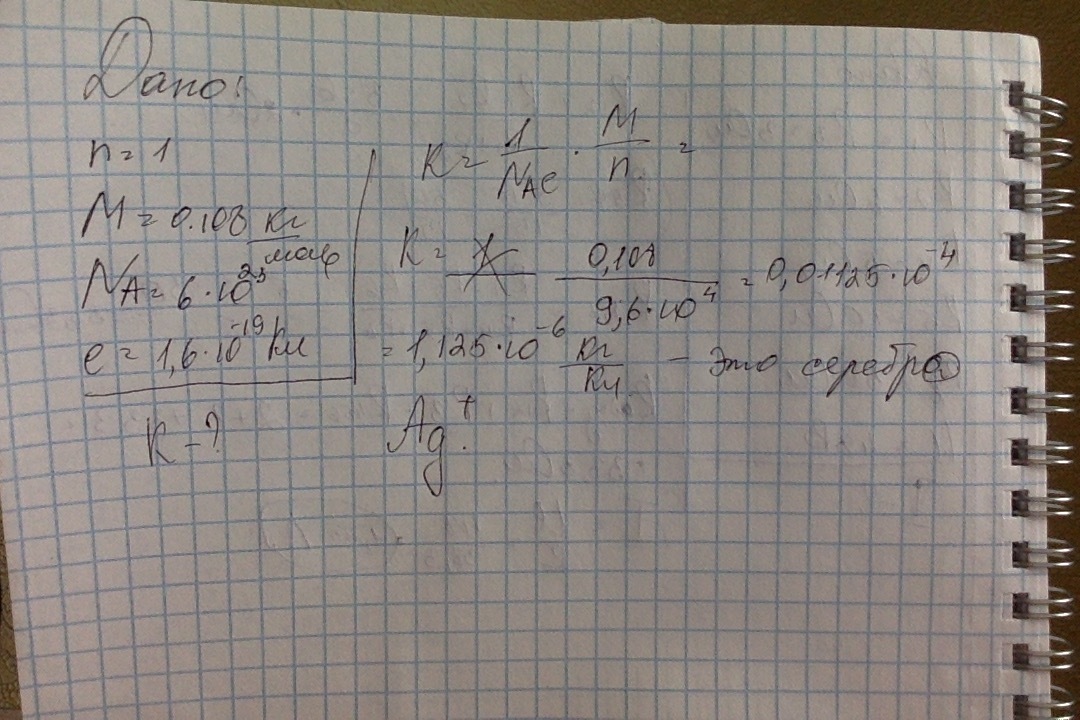 Дано:
n = 1
M = 0.108 кг/моль
NA = 6·10²³
e = 1,6·10⁻¹⁹ Кл
K - ?
K = 1/NAe · M/n =
K = 0,108/9,6·10⁴ = 0,01125·10⁻⁴
= 1,125·10⁻⁶ кг/Кл - это серебро
Ag⁺.